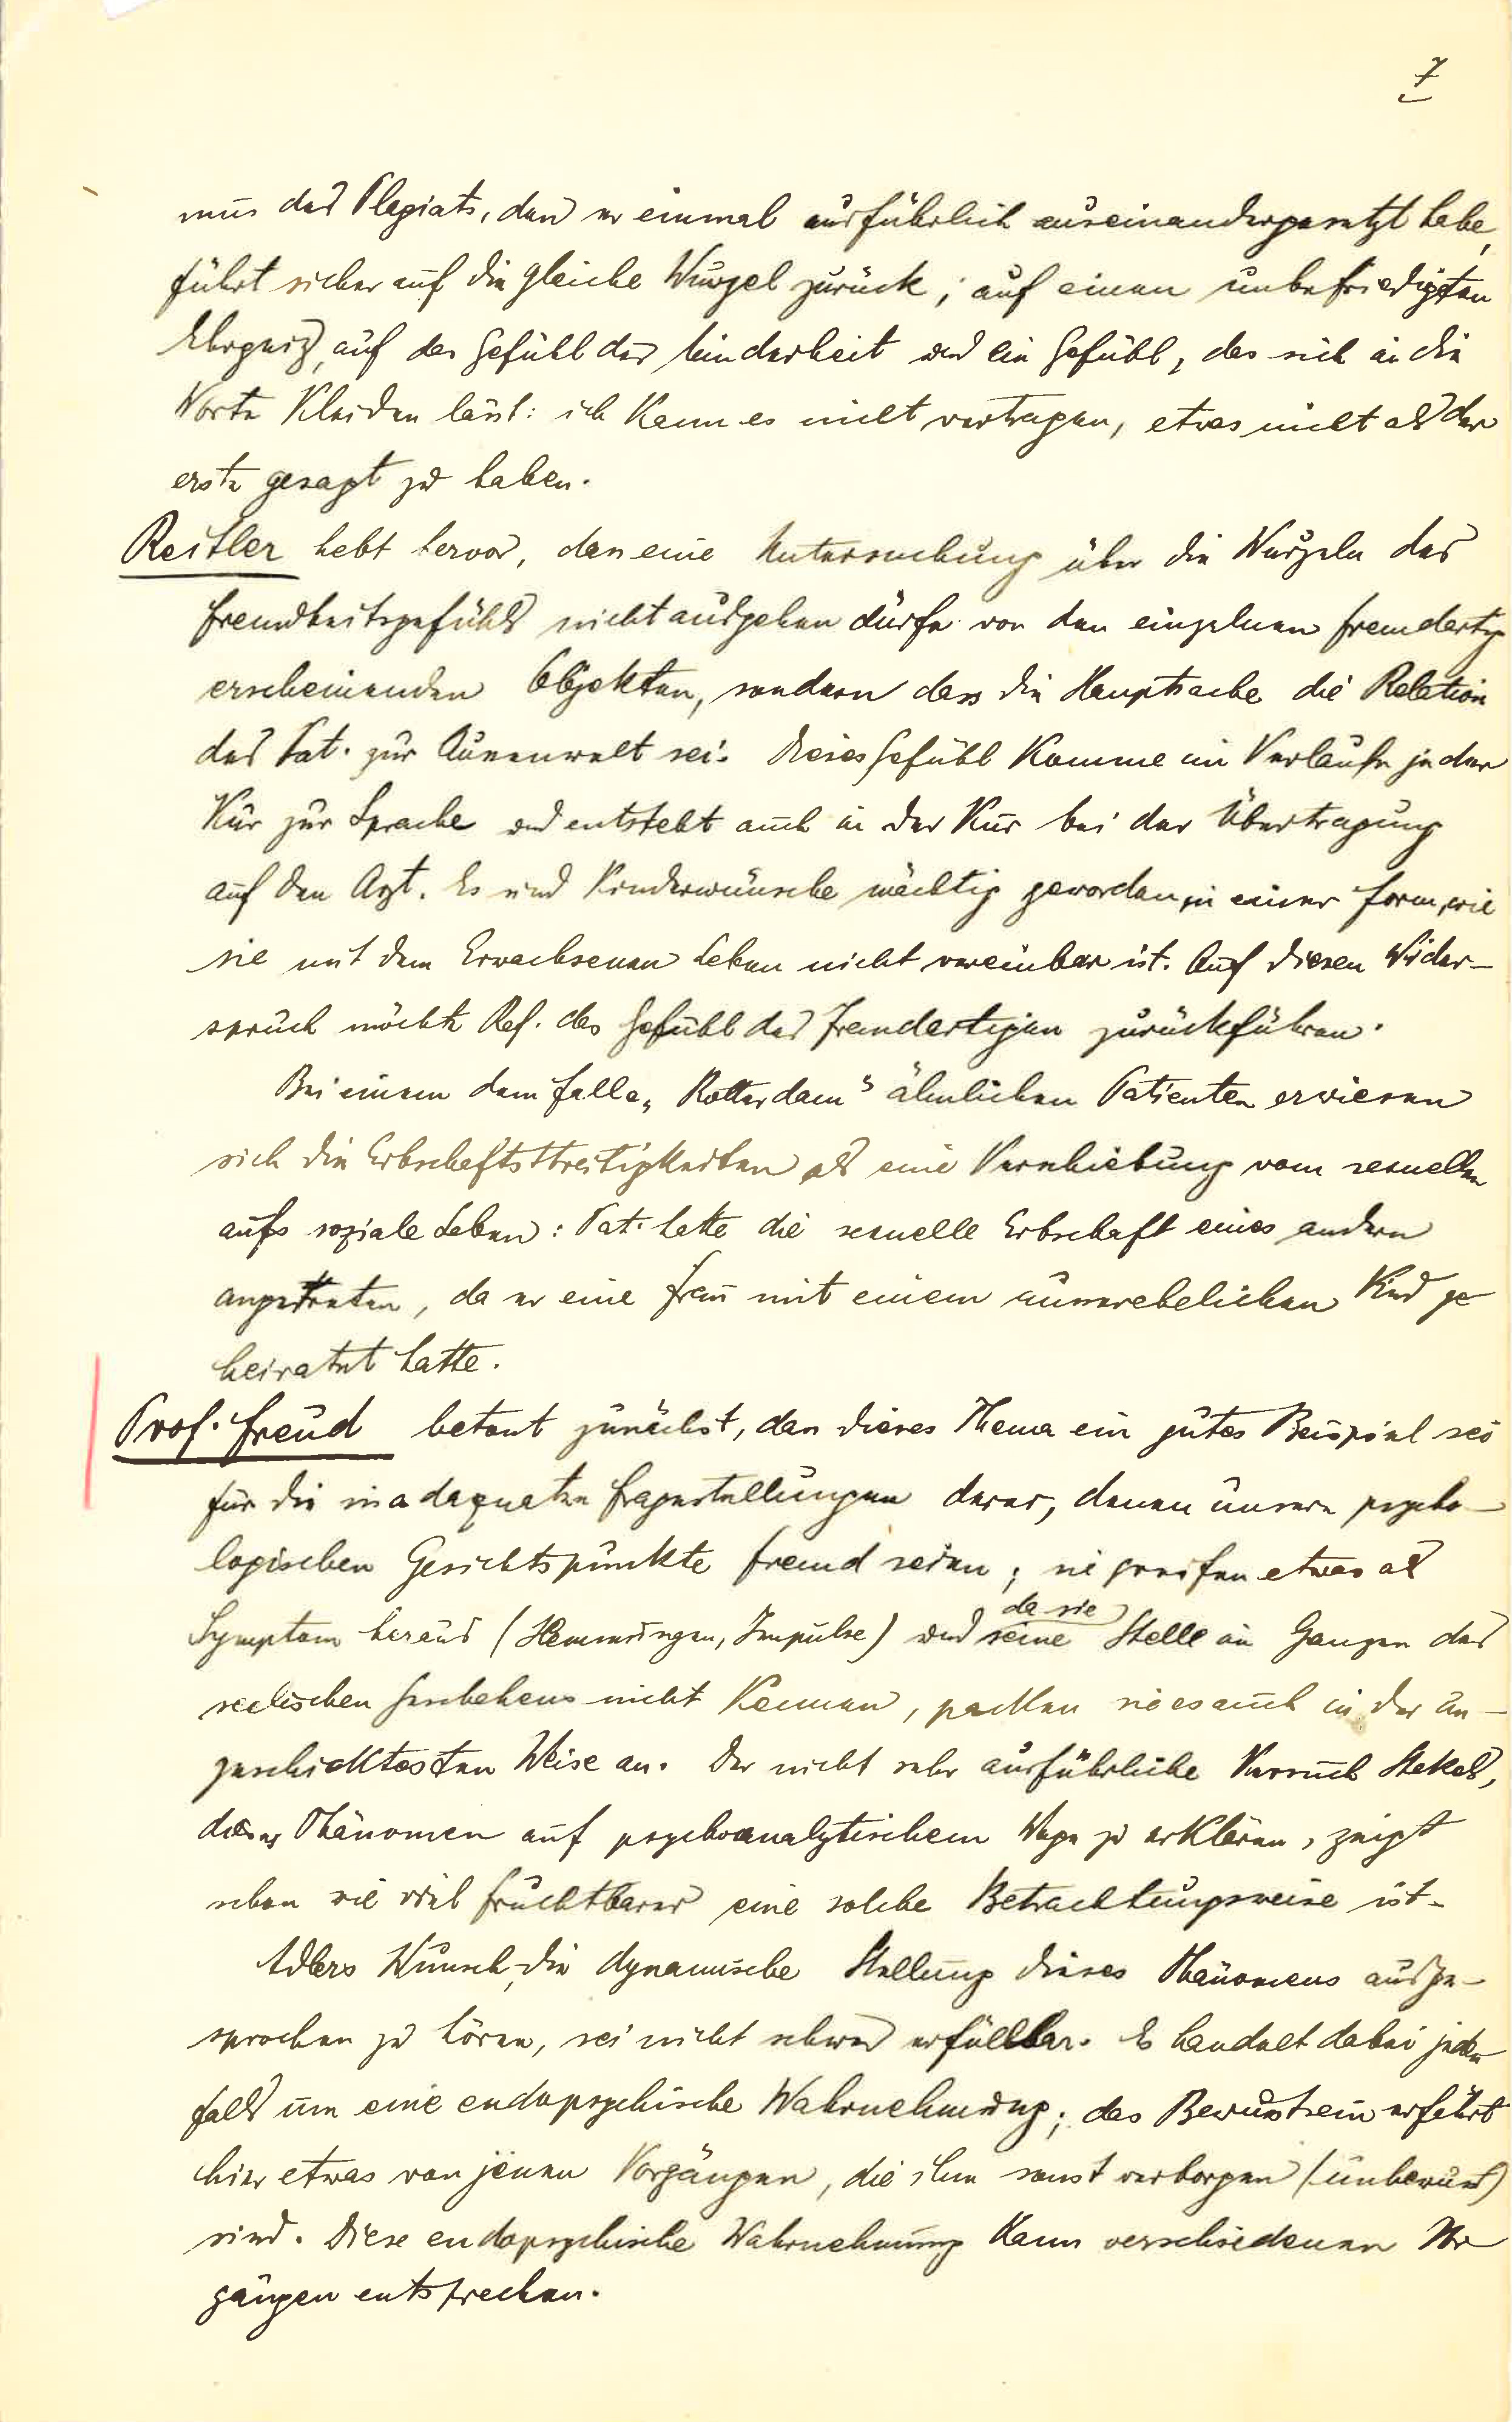 7
mus des Plagiats, den er einmal ausführlich auseinandergesetzt habe,
führt sicher auf die gleiche Wurzel zurück; auf einen unbefriedigten
Ehrgeiz, auf das Gefühl der Minderheit und ein Gefühl, das sich in die
Worte kleiden lässt: ich kann es nicht vertragen, etwas nicht als der
erste gesagt zu haben.
Reitler hebt hervor, dass eine Untersuchung über die Wurzeln des
Fremdheitsgefühls nicht ausgehen dürfe von den einzelnen fremdartig
erscheinenden Objekten, sondern dass die Hauptsache die Relation
des Pat. zur Aussenwelt sei. Dieses Gefühl komme im Verlaufe jeder
Kur zur Sprache und entsteht auch in der Kur bei der Übertragung
auf den Arzt. Es sind Kinderwünsche mächtig geworden in einer Form, wie
sie mit dem Erwachsenen Leben nicht vereinbar ist. Auf diesen Wider-
spruch möchte Ref. das Gefühl des Fremdartigen zurückführen.
Bei einem dem Falle „Rotterdam" ähnlichen Patienten erwiesen
sich die Erbschaftsstreitigkeiten als eine Verschiebung vom sexuellen
aufs soziale Leben: Pat. hatte die sexuelle Erbschaft eines andern
angetreten, da er eine Frau mit einem ausserehelichen Kind ge-
heiratet hatte.
Prof. Freud betont zunächst, dass dieses Thema ein gutes Beispiel sei
für die inadaequaten Fragestellungen derer, denen unsere psycho-
logischen Gesichtspunkte fremd seien; sie greifen etwas als
Symptom heraus (Hemmungen, Impulse) und da sie seine Stelle im Ganzen des
seelischen Geschehens nicht kennen, packen sie es auch in der un-
geschicktesten Weise an. Der nicht sehr ausführliche Versuch Stekels,
dieses Phänomen auf psychoanalytischem Wege zu erklären, zeigt
schon wie viel fruchtbarer eine solche Betrachtungsweise ist.
Adlers Wunsch, die dynamische Stellung dieses Phänomens ausge-
sprochen zu hören, sei nicht schwer erfüllbar. Es handelt dabei jeden
falls um eine endopsychische Wahrnehmung; das Bewusstsein erfährt
hier etwas von jenen Vorgängen, die ihm sonst verborgen (unbewusst)
sind. Diese endopsychische Wahrnehmung kann verschiedenen Vor
gängen entsprechen.